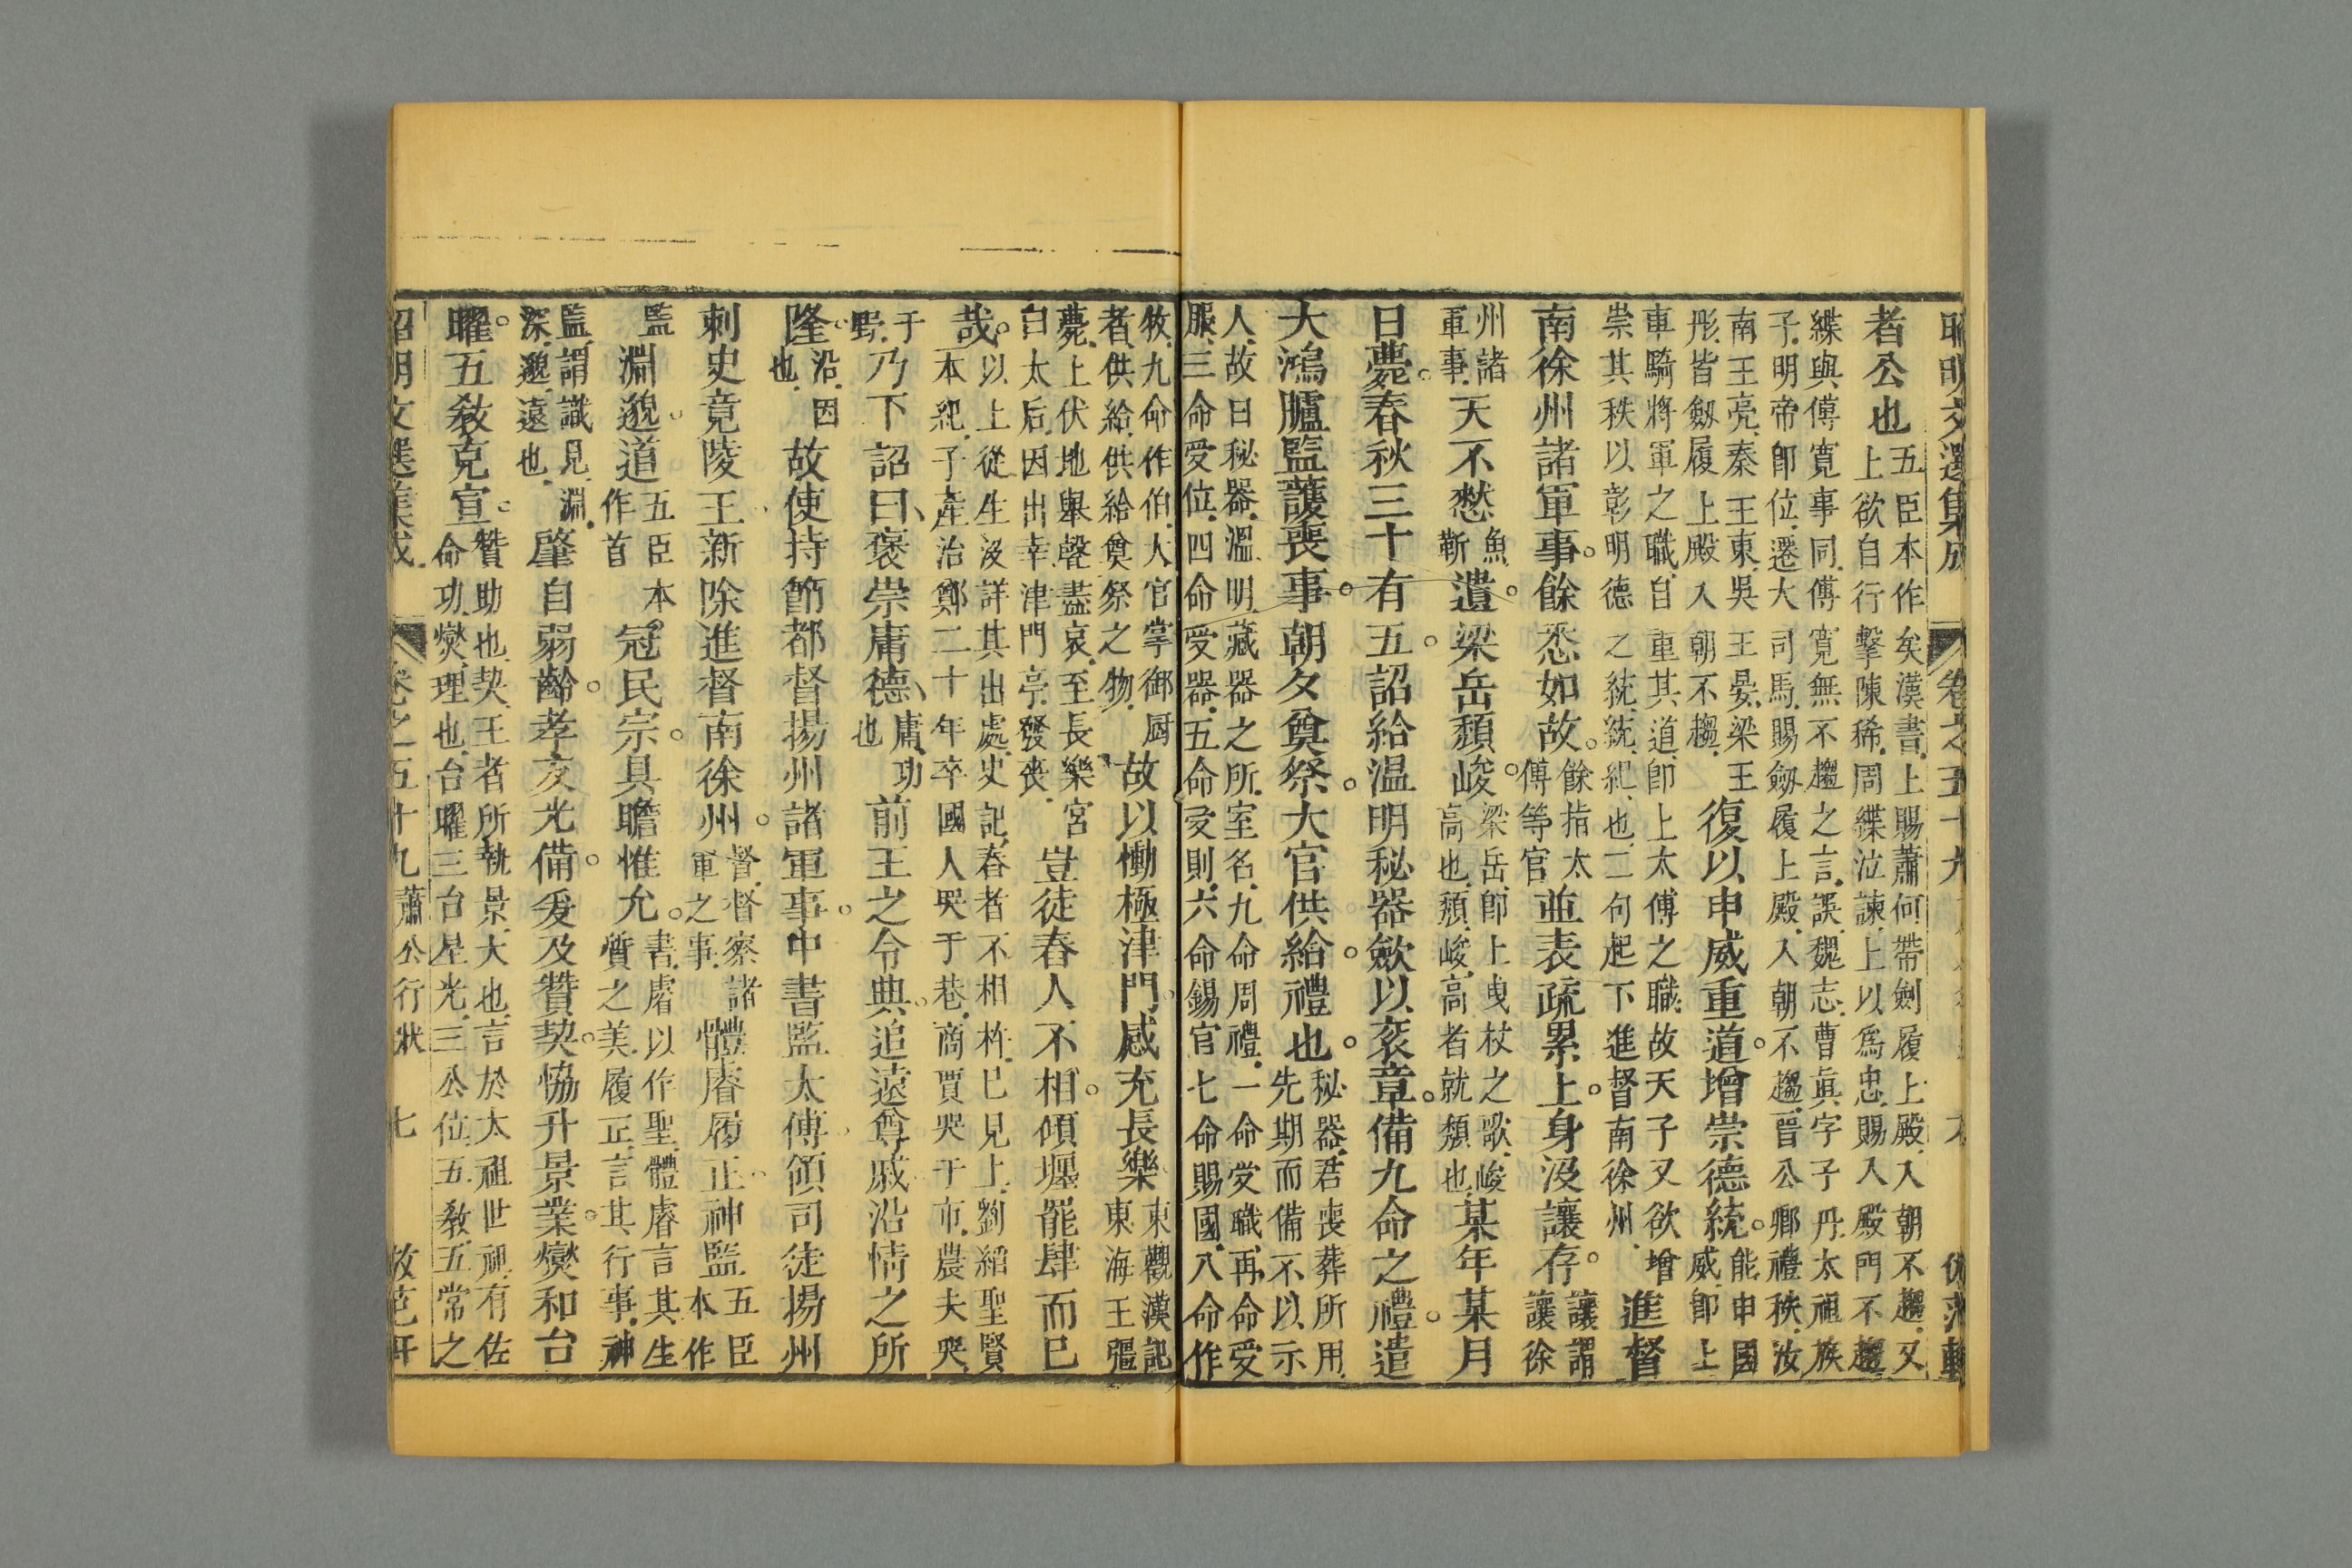 昭明文選集成 卷之五十九 六 倣范軒
者公也五臣本作矣漢書上賜蕭何帶劍履上殿入朝不趨又
上欲自行擊陳豨周緤泣諫上以爲忠賜入殿門不趨
緤與傅寛事同傅寛無不趨之言誤魏志曹眞字子丹太祖族
子明帝卽位遷大司馬賜劒履上殿入朝不趨晉公卿禮秩汝
南王亮秦王東吳王晏梁王
彤皆劒履上殿入朝不趨
復以申威重道增崇德統能申國
威卽上
車騎將軍之職自重其道卽上太傅之職故天子又欲增
崇其秩以彰明德之統統紀也二句起下進督南徐州
進督
南徐州諸軍事餘悉如故餘指太
傅等官
並表疏累上身沒讓存讓謂
讓徐
州諸
軍事
天不憖魚
靳
遺梁岳頹峻梁岳卽上曳杖之歌峻
高也頹峻高者就頹也
某年某月
日薨春秋三十有五詔給温明秘器斂以衮章備九命之禮遣
大鴻臚監護喪事朝夕奠祭大官供給禮也秘器君喪葬所用
先期而備不以示
人故曰秘器溫明藏器之所室名九命周禮一命受職再命受
服三命受位四命受器五命受則六命錫官七命賜國八命作
牧九命作伯大官掌御厨
者供給供給奠祭之物
故以慟極津門感充長樂東觀漢記
東海王彊
薨上伏地舉聲盡哀至長樂宮
白太后因出幸津門亭發喪
豈徒春人不相傾壥罷肆而已
哉以上從生沒詳其出處史記春者不相杵已見上劉縚聖賢
本紀子產治鄭二十年卒國人哭于巷商賈哭于市農夫哭
于
野
乃下詔曰褒崇庸德庸功
也
前王之令典追遠尊戚沿情之所
隆沿因
也
故使持節都督揚州諸軍事中書監太傅領司徒揚州
刺史竟陵王新除進督南徐州督督察諸
軍之事
體睿履正神監五臣
本作
監
淵邈道五臣本
作首
冠民宗具瞻惟允書睿以作聖體睿言其生
質之美履正言其行事神
監謂識見淵
深邈遠也
肇自弱齡孝友光備爰及贊契恊升景業燮和台
曜五敎克宣贊助也契王者所執景大也言於太祖世祖有佐
命功燮理也台曜三台星光三公位五敎五常之
昭明文選集成 卷之五十九蕭公行狀 七 倣范軒